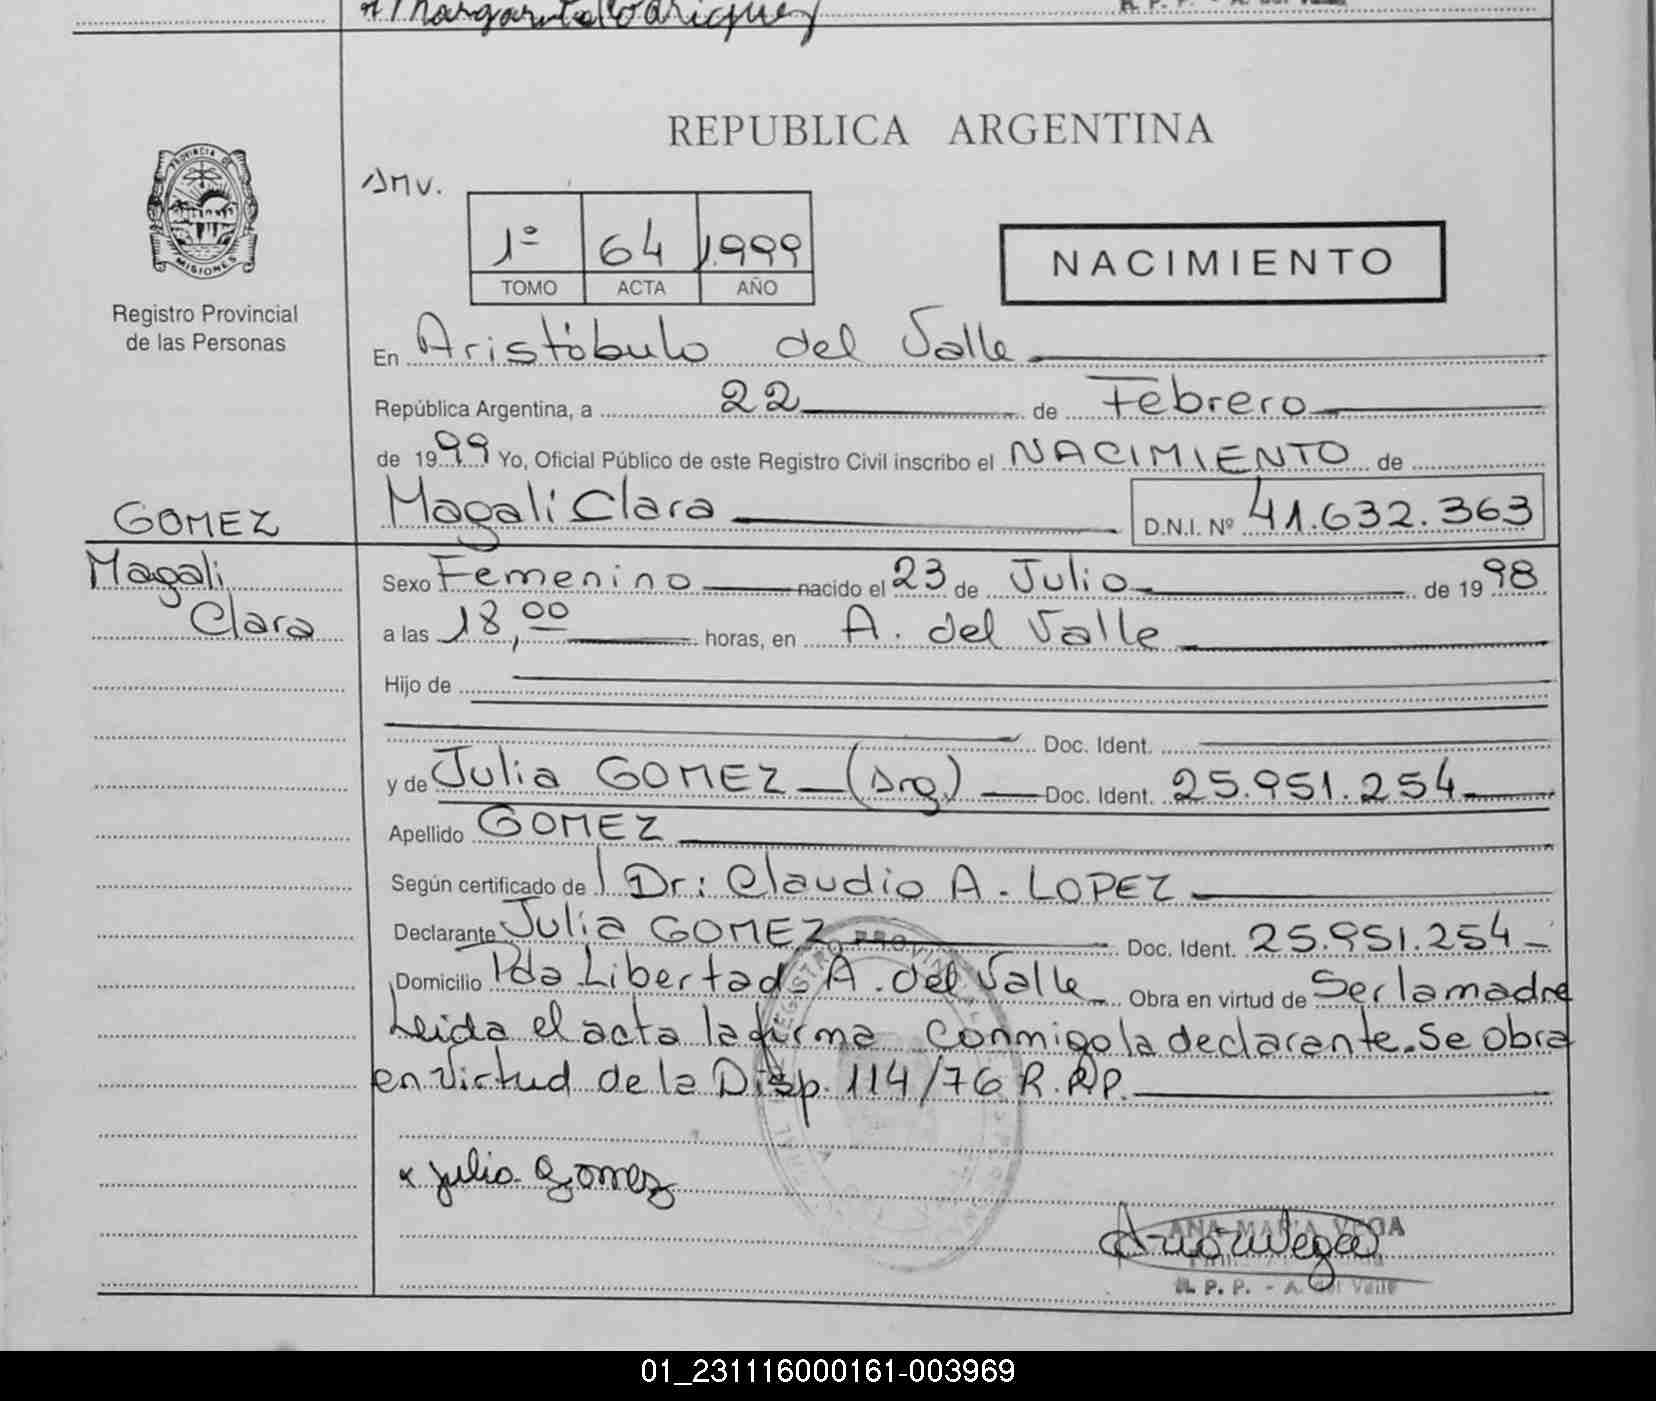 Margarita Rodriguez
REPUBLICA ARGENTINA
PROVINCIA DE
MISIONES
Registro Provincial
de las Personas
1º 64 1.999
TOMO ACTA AÑO
NACIMIENTO
En Aristóbulo del Valle
República Argentina, a 22 de Febrero
de 1999 Yo, Oficial Público de este Registro Civil inscribo el NACIMIENTO de
Magali Clara D.N.I. Nº 41.632.363
GOMEZ
Magali
Clara
Sexo Femenino nacido el 23 de Julio de 1998
a las 18,00 horas, en A. del Valle
Hijo de
Doc. Ident.
y de Julia GOMEZ (Arg.) Doc. Ident. 25.951.254
Apellido GOMEZ
Según certificado de Dr: Claudio A. LOPEZ
Declarante Julia GOMEZ Doc. Ident. 25.951.254
Domicilio Pda Libertad. A. del Valle Obra en virtud de Ser la madre
Leida el acta la firma conmigo la declarante. Se obra
en virtud de la Disp. 114/76 R.P.P.
x Julia Gomez
ANA MARIA VEGA
R. P. P. - A. del Valle
01_231116000161-003969